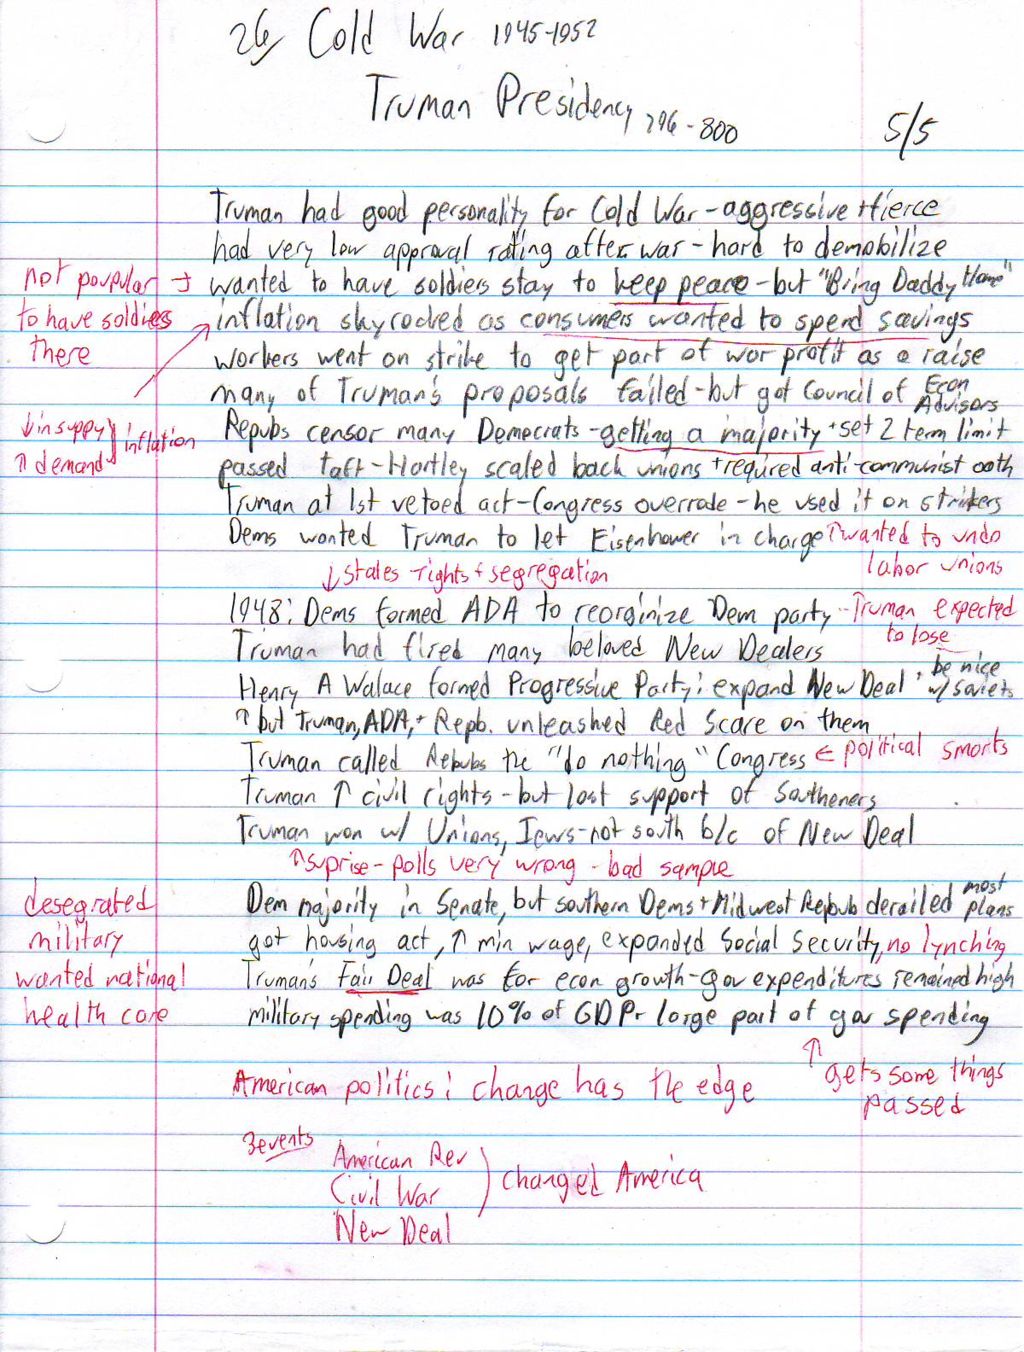 26/ Cold War 1945-1952
Truman Presidency 796-800
5/5
Truman had good personality for Cold War - aggressive + fierce
had very low approval rating after war - hard to demobilize
not poupular → wanted to have soldiers stay to keep peace - but "Bring Daddy Home"
to have soldiers inflation skyrocked as consumers wanted to spend savings
there workers went on strike to get part of war profit as a raise
many of Truman's proposals failed - but got Council of Econ Advisors
↓ in suppy } inflation Repubs censor many Democrats - getting a majority + set 2 term limit
↑ demand passed Taft-Hartley scaled back unions + required anti-communist oath
Truman at 1st vetoed act - Congress overrode - he used it on strikers
Dems wanted Truman to let Eisenhower in charge ↑ wanted to undo
labor unions
↓ states rights + segregation
1948: Dems formed ADA to reorginize Dem party - Truman expected
to lose
Truman had fired many beloved New Dealers
Henry A Walace formed Progressive Party: expand New Deal + be nice w/ Soviets
↑ but Truman, ADA, + Repb. unleashed Red Scare on them
Truman called Repubs the "do nothing" Congress ← political smarts
Truman ↑ civil rights - but lost support of Southeners
Truman won w/ Unions, Jews - not south b/c of New Deal
↑ suprise - polls very wrong - bad sample
desegrated Dem majority in Senate, but southern Dems + Midwest Repub derailed most plans
military got housing act, ↑ min wage, expanded Social Security, no lynching
wanted national Truman's Fair Deal was for econ growth - gov expenditures remained high
health care military spending was 10% of GDP - large part of gov spending
↑ gets some things
passed
American politics: change has the edge
3 events American Rev
Civil War ) changed America
New Deal